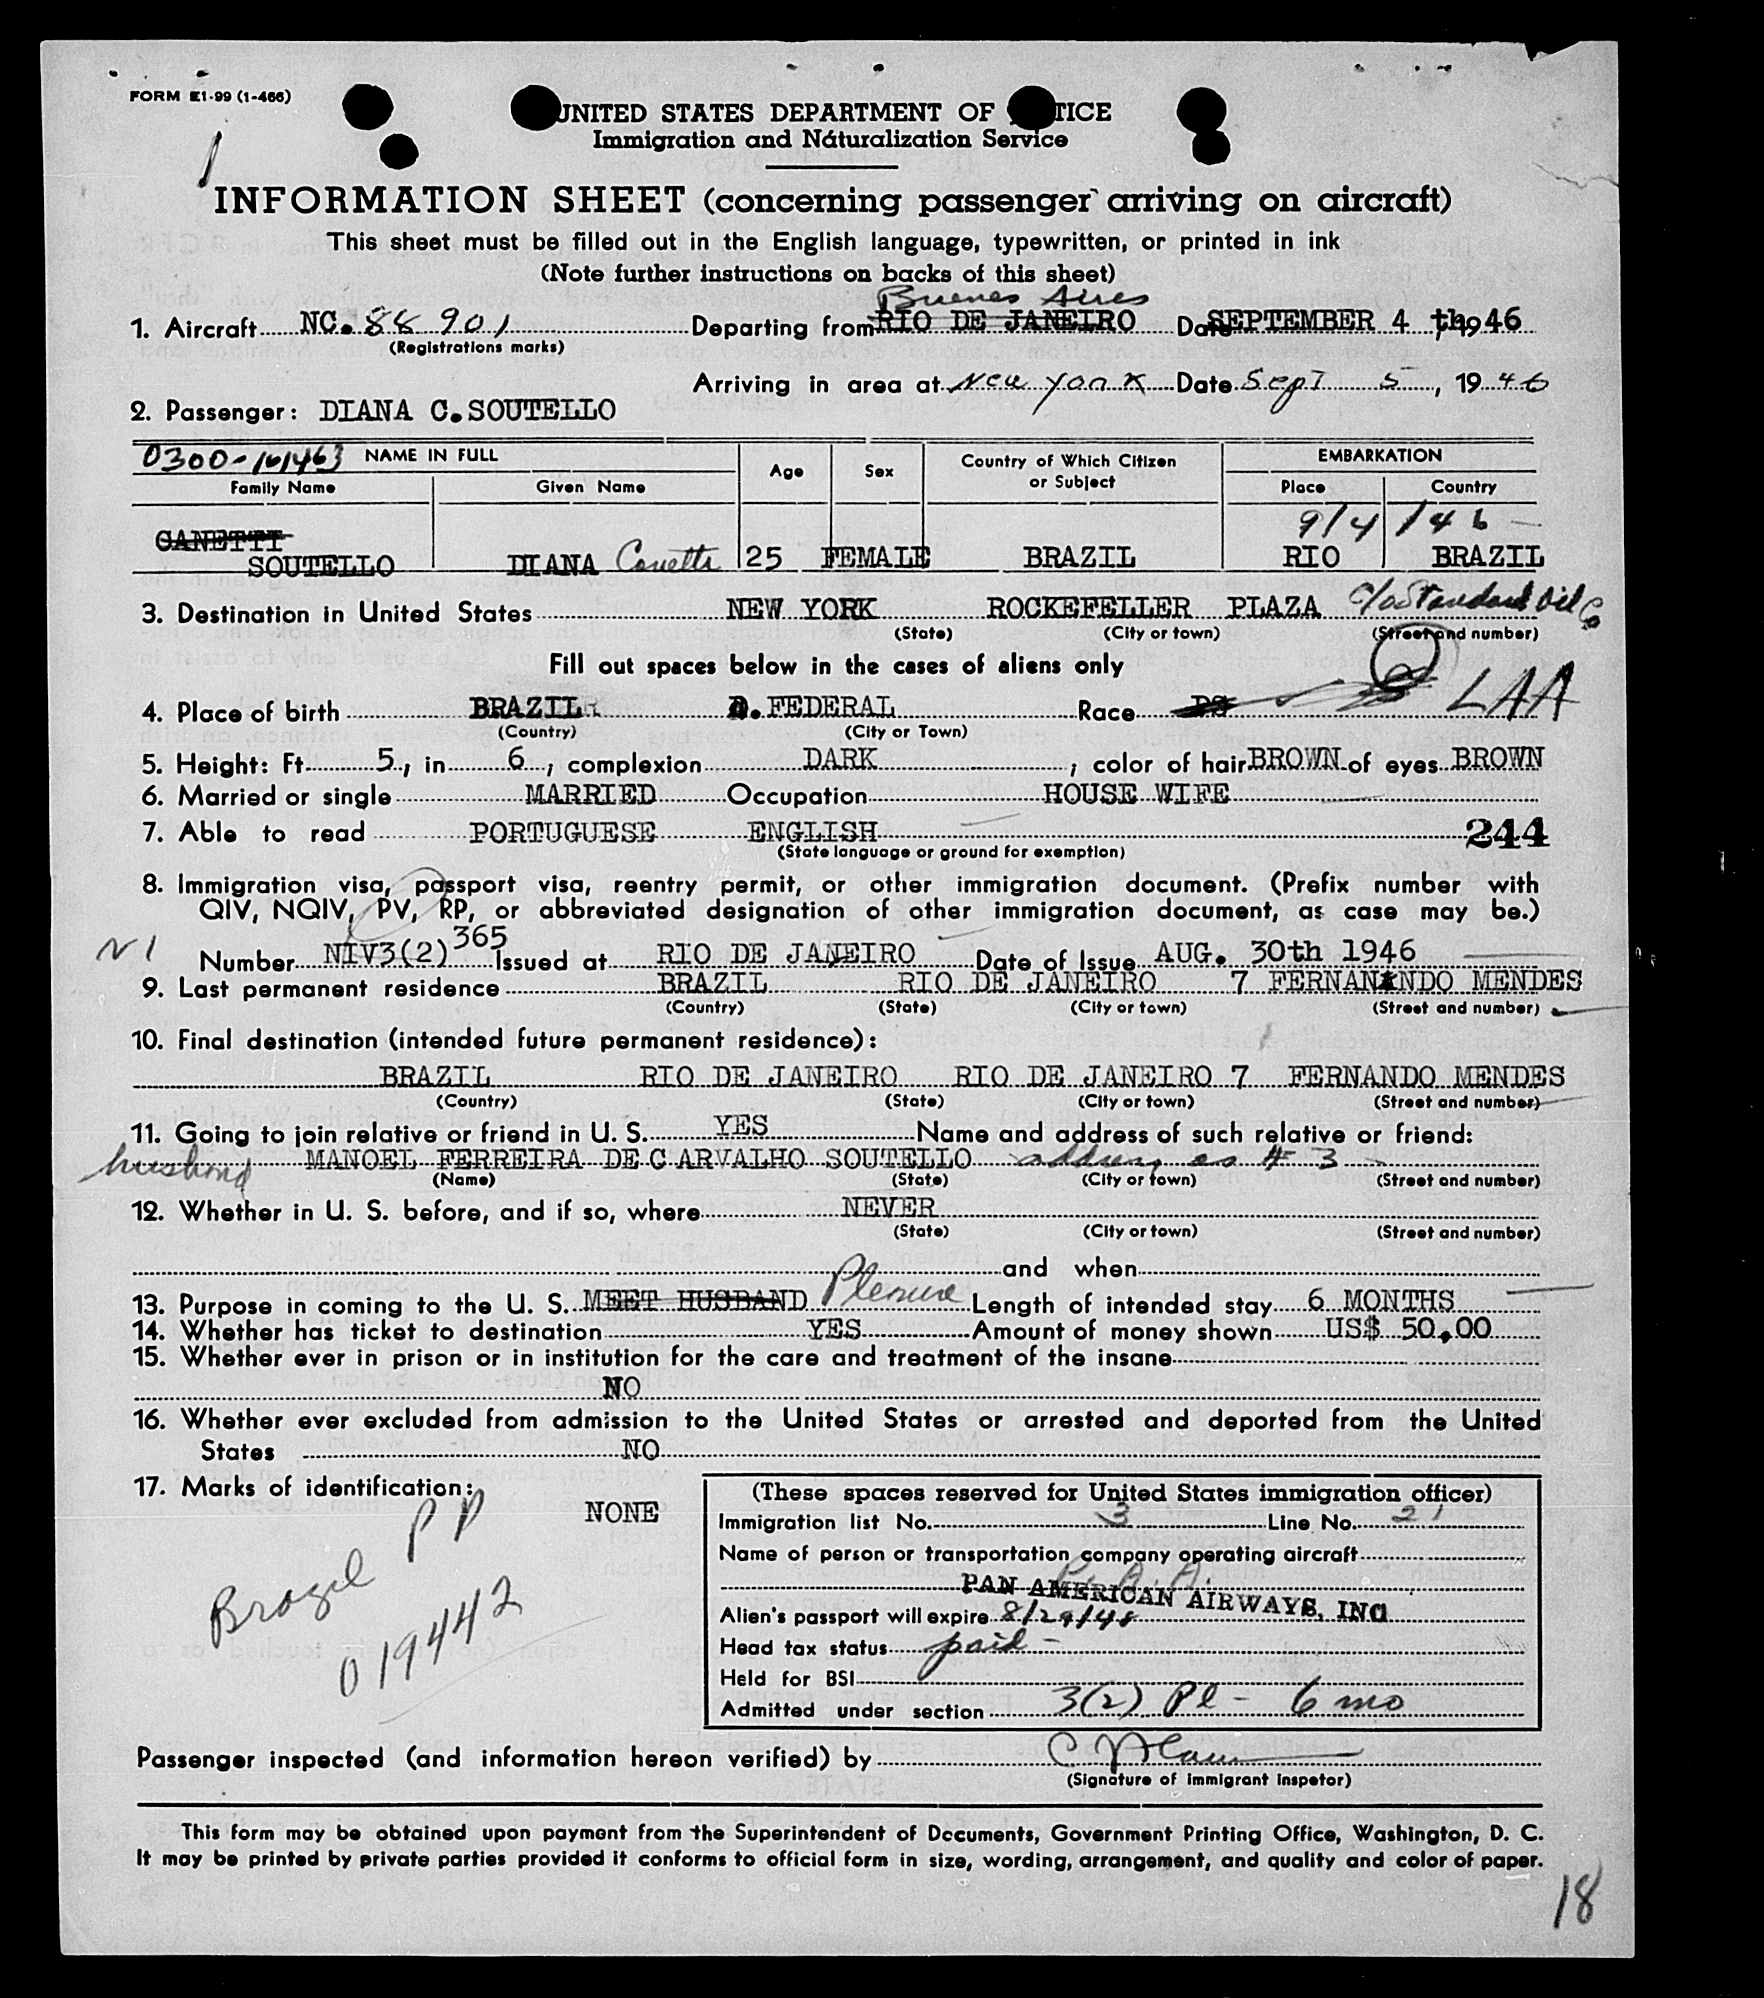 FORM E1-99 (1-466)
UNITED STATES DEPARTMENT OF JUSTICE
Immigration and Naturalization Service
INFORMATION SHEET (concerning passenger arriving on aircraft)
This sheet must be filled out in the English language, typewritten, or printed in ink
(Note further instructions on backs of this sheet)
Buenos Aires
1. Aircraft NC. 88 901 Departing from RIO DE JANEIRO Date SEPTEMBER 4 th, 1946
(Registrations marks)
Arriving in area at New York Date Sept 5, 1946
2. Passenger: DIANA C. SOUTELLO
0300-161463 NAME IN FULL Age Sex Country of Which Citizen or Subject EMBARKATION
Family Name Given Name Place Country
9/4/46
CANETTI
SOUTELLO DIANA Canetti 25 FEMALE BRAZIL RIO BRAZIL
3. Destination in United States NEW YORK ROCKEFELLER PLAZA c/o Standard Oil Co
(State) (City or town) (Street and number)
Fill out spaces below in the cases of aliens only
4. Place of birth BRAZIL D. FEDERAL Race PS LAA
(Country) (City or Town)
5. Height: Ft. 5, in 6, complexion DARK; color of hair BROWN of eyes BROWN
6. Married or single MARRIED Occupation HOUSE WIFE
7. Able to read PORTUGUESE ENGLISH 244
(State language or ground for exemption)
8. Immigration visa, passport visa, reentry permit, or other immigration document. (Prefix number with
QIV, NQIV, PV, RP, or abbreviated designation of other immigration document, as case may be.)
Number NIV3(2) 365 Issued at RIO DE JANEIRO Date of Issue AUG. 30th 1946
9. Last permanent residence BRAZIL RIO DE JANEIRO 7 FERNANNDO MENDES
(Country) (State) (City or town) (Street and number)
10. Final destination (intended future permanent residence):
BRAZIL RIO DE JANEIRO RIO DE JANEIRO 7 FERNANDO MENDES
(Country) (State) (City or town) (Street and number)
11. Going to join relative or friend in U. S. YES Name and address of such relative or friend:
husband MANOEL FERREIRA DE CARVALHO SOUTELLO address as # 3
(Name) (State) (City or town) (Street and number)
12. Whether in U. S. before, and if so, where NEVER
(State) (City or town) (Street and number)
and when
13. Purpose in coming to the U. S. MEET HUSBAND Pleasure Length of intended stay 6 MONTHS
14. Whether has ticket to destination YES Amount of money shown US$ 50.00
15. Whether ever in prison or in institution for the care and treatment of the insane
NO
16. Whether ever excluded from admission to the United States or arrested and deported from the United
States NO
17. Marks of identification:
NONE
Brazil PP
019442
(These spaces reserved for United States immigration officer)
Immigration list No. 3 Line No. 21
Name of person or transportation company operating aircraft
P. A. A.
PAN AMERICAN AIRWAYS, INC
Alien's passport will expire 8/29/48
Head tax status paid -
Held for BSI
Admitted under section 3(2) Pl - 6 mo
Passenger inspected (and information hereon verified) by
(Signature of immigrant inspetor)
This form may be obtained upon payment from the Superintendent of Documents, Government Printing Office, Washington, D. C.
It may be printed by private parties provided it conforms to official form in size, wording, arrangement, and quality and color of paper.
18